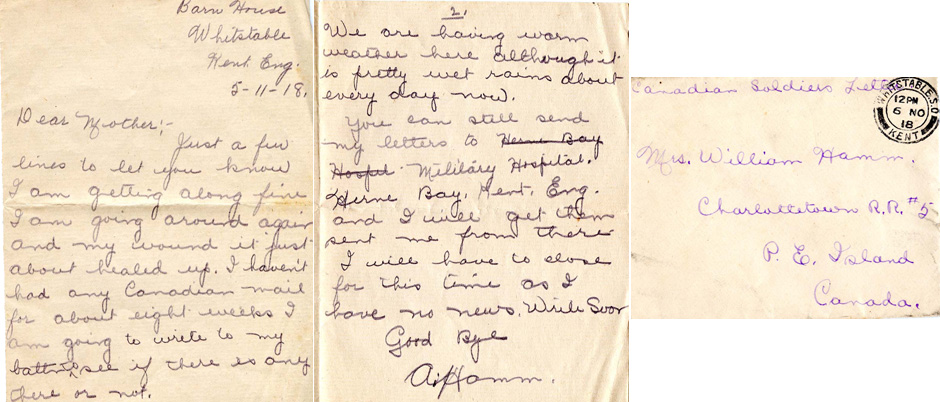 Barn House
Whitstable
Kent Eng.
5-11-18.
Dear Mother;-
Just a few
lines to let you know
I am getting along fine
I am going around again
and my wound it just
about healed up. I haven't
had any Canadian mail
for about eight weeks I
am going to write to my
battn to see if there is any
there or not.
2.
We are having warm
weather here although it
is pretty wet rains about
every day now.
You can still send
my letters to Herne Bay
Hospit Military Hospital,
Herne Bay, Kent, Eng.
and I will get them
sent me from there
I will have to close
for this time as I
have no news. Write Soon
Good Bye
A. Hamm.
Canadian Soldiers Letter
WHITSTABLE. S.O
12PM
6 NO
18
KENT
Mrs. William Hamm.
Charlottetown R.R. #5
P. E. Island
Canada.